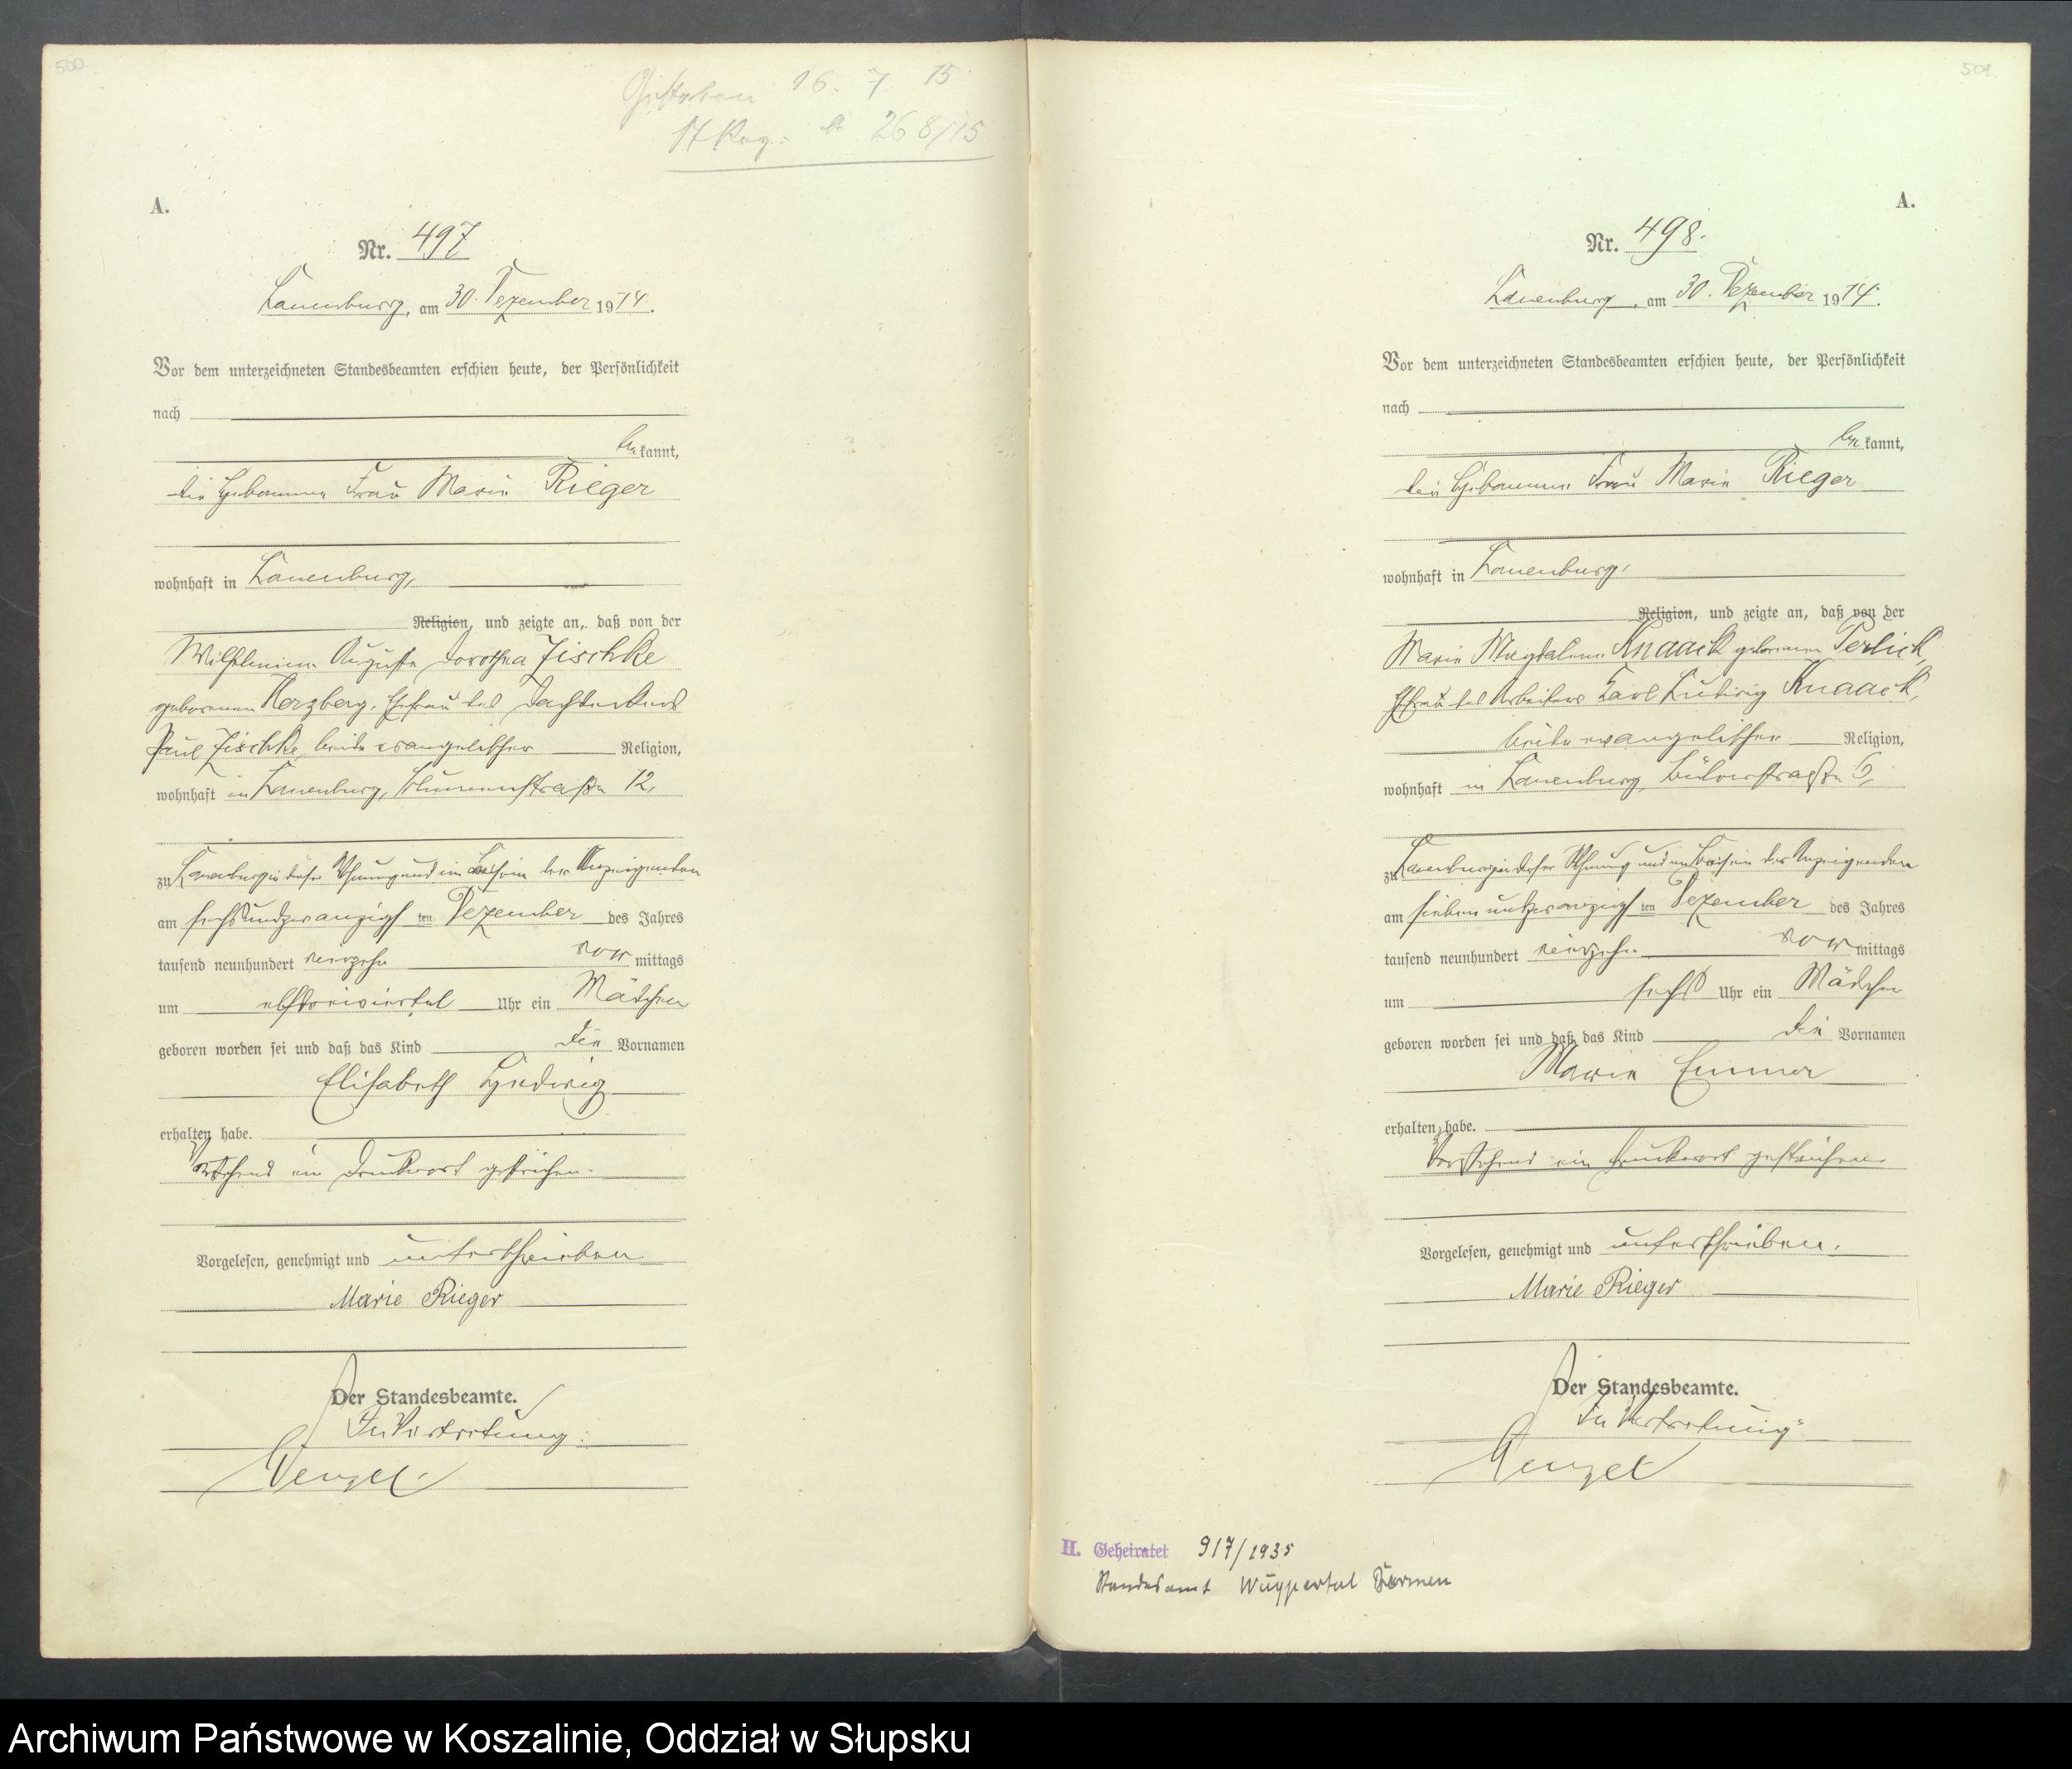 500
Gestorben 16. 7. 15
St. Reg. Nr. 268/15
A.
Nr. 497
Lauenburg, am 30. Dezember 1914.
Vor dem unterzeichneten Standesbeamten erschien heute, der Persönlichkeit
nach
bekannt,
die Hebamme Frau Marie Rieger
wohnhaft in Lauenburg,
Religion, und zeigte an, daß von der
Wilhelmine Auguste Dorothea Zischke
geborenen Herzberg, Ehefrau des Dachdeckers
Paul Zischke, beide evangelischer Religion,
wohnhaft in Lauenburg, Blumenstraße 12,
zu Lauenburg in dieser Wohnung und im Beisein der Anzeigenden
am sechsundzwanzigsten Dezember des Jahres
tausend neunhundert vierzehn vormittags
um elfdreiviertel Uhr ein Mädchen
geboren worden sei und daß das Kind die Vornamen
Elisabeth Hedwig
erhalten habe.
Vorstehend ein Druckwort gestrichen.
Vorgelesen, genehmigt und unterschrieben
Marie Rieger
Der Standesbeamte.
In Vertretung:
Wenzel
501
A.
Nr. 498.
Lauenburg, am 30. Dezember 1914.
Vor dem unterzeichneten Standesbeamten erschien heute, der Persönlichkeit
nach
bekannt,
die Hebamme Frau Marie Rieger
wohnhaft in Lauenburg,
Religion, und zeigte an, daß von der
Marie Magdalene Knaack geborenen Perlick,
Ehefrau des Arbeiters Karl Ludwig Knaack,
beide evangelischer Religion,
wohnhaft in Lauenburg, Bülowstraße 6,
zu Lauenburg in dieser Wohnung und im Beisein der Anzeigenden
am siebenundzwanzigsten Dezember des Jahres
tausend neunhundert vierzehn vormittags
um sechs Uhr ein Mädchen
geboren worden sei und daß das Kind die Vornamen
Marie Emma
erhalten habe.
Vorstehend ein Druckwort gestrichen.
Vorgelesen, genehmigt und unterschrieben.
Marie Rieger
Der Standesbeamte.
In Vertretung:
Wenzel
H. Geheiratet 917/1935
Standesamt Wuppertal Barmen
Archiwum Państwowe w Koszalinie, Oddział w Słupsku